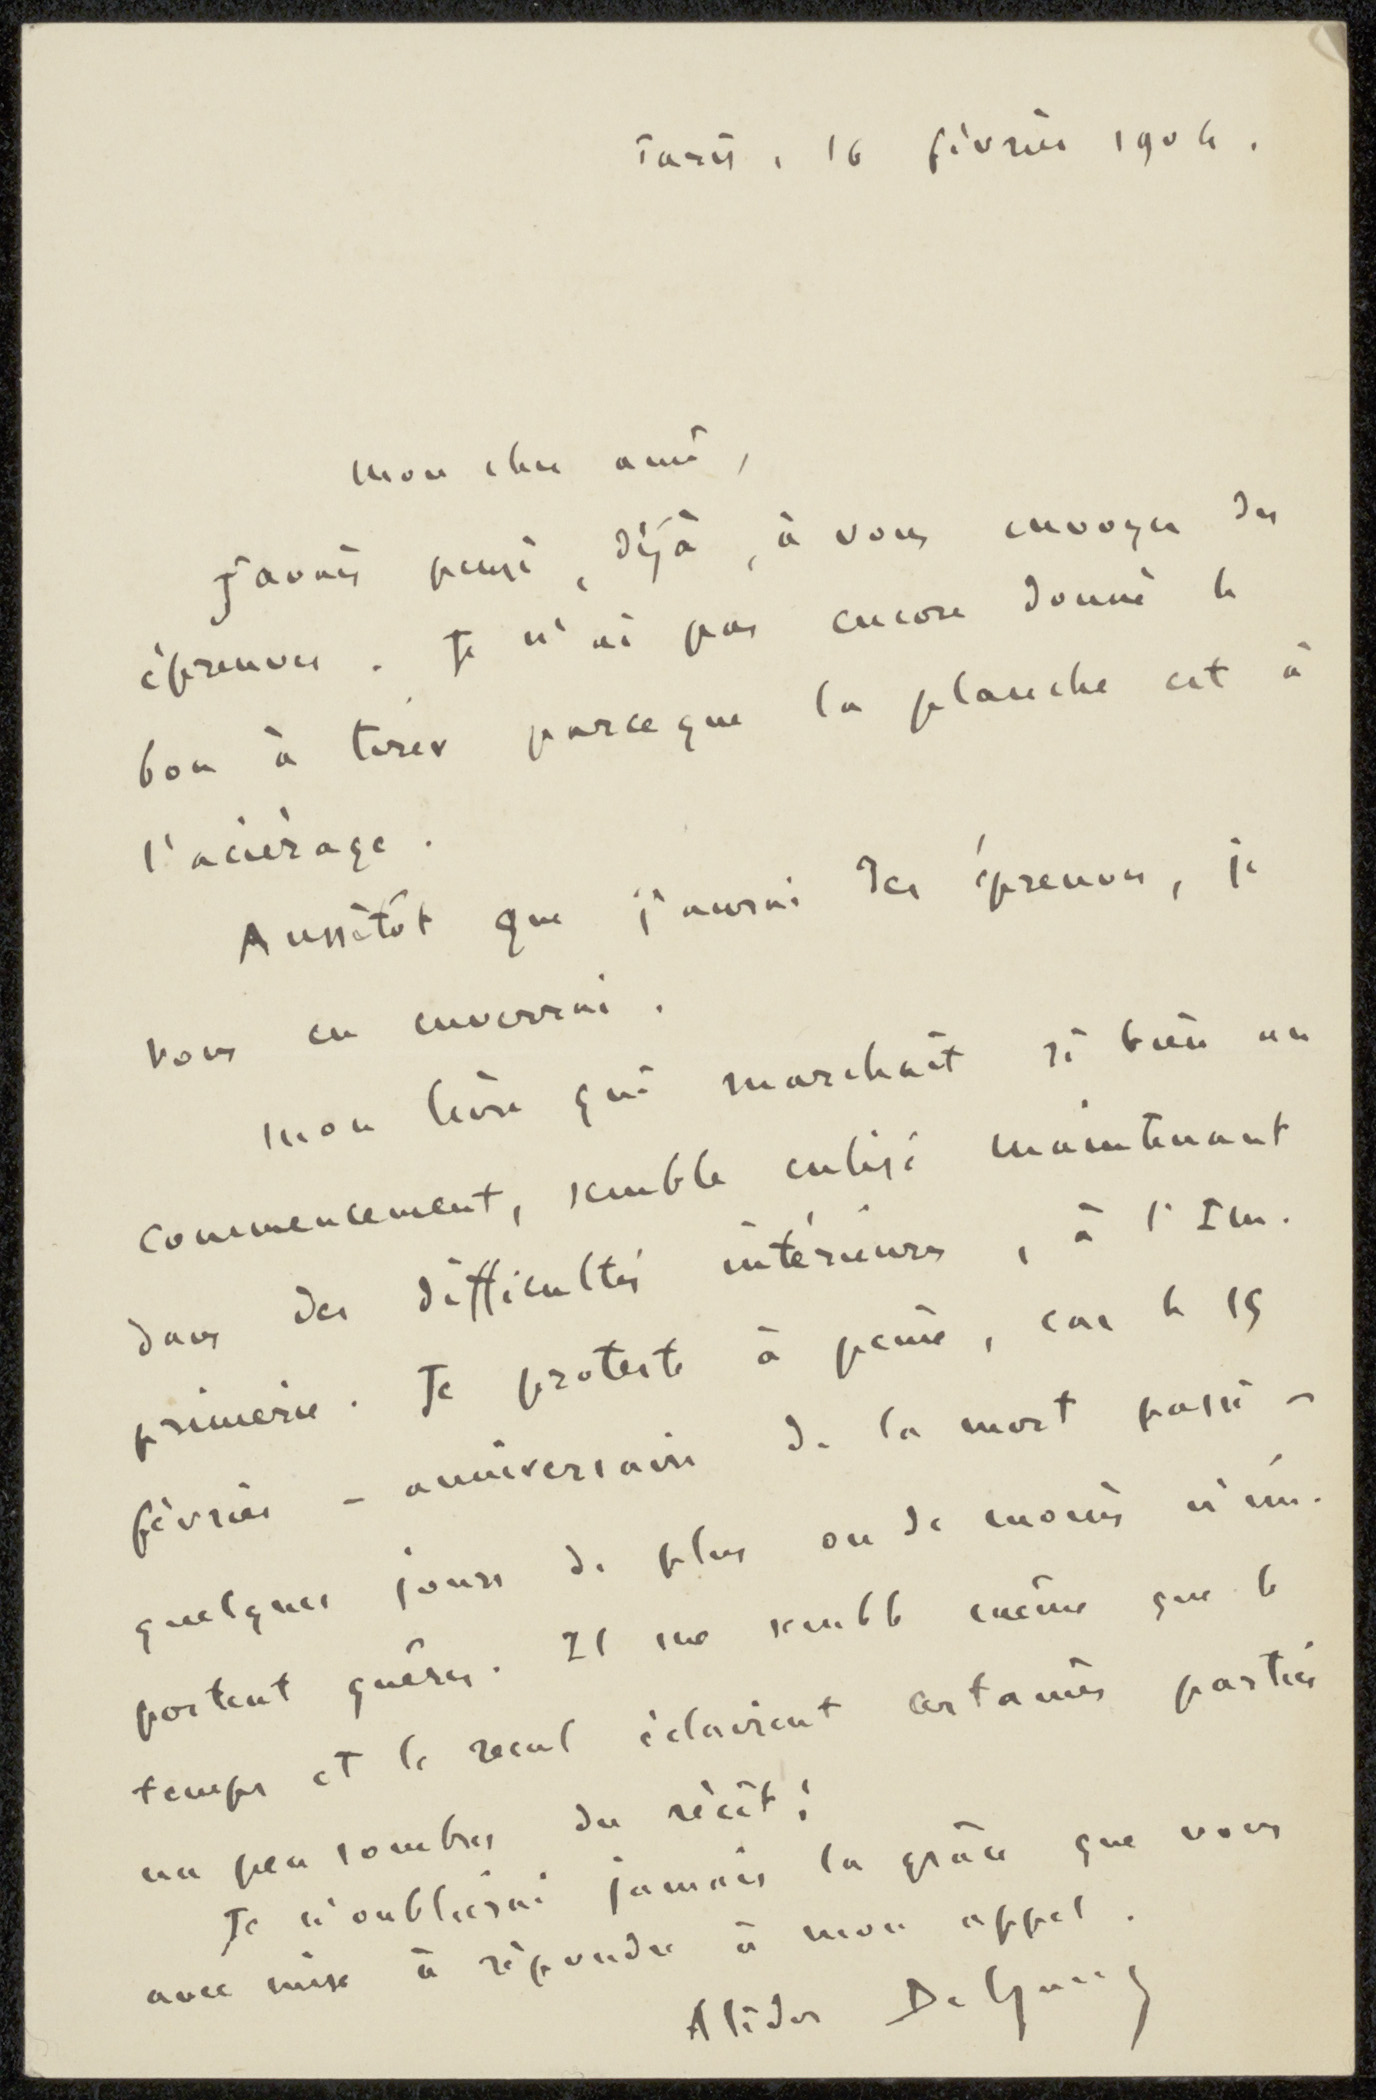 Paris, 16 février 1904.
Mon cher ami,
J'avais pensé, déjà, à vous envoyer des
épreuves. Je n'ai pas encore donné le
bon à tirer parceque la planche est à
l'aciérage.
Aussitôt que j'aurai des épreuves, je
vous en enverrai.
Mon livre qui marchait si bien au
commencement, semble enlisé maintenant
dans des difficultés intérieures, à l'Im-
primerie. Je proteste à peine, car le 15
février - anniversaire de la mort passé -
quelques jours de plus ou de moins n'im-
portent guères. Il me semble même que le
temps et le recul éclairent certaines parties
un peu sombres du récit!
Je n'oublierai jamais la grâce que vous
avez mise à répondre à mon appel.
Alidor Delzant